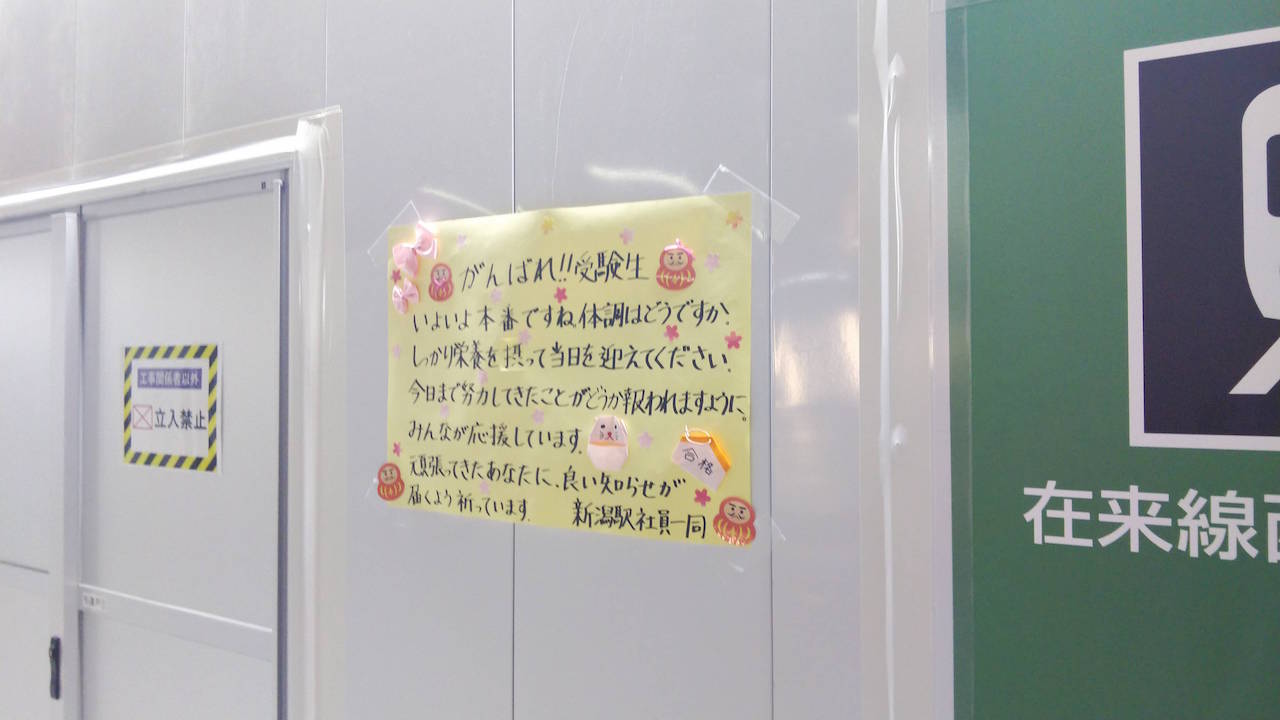 工事関係者以外
立入禁止
がんばれ!!受験生
いよいよ本番ですね。体調はどうですか?
しっかり栄養を摂って当日を迎えてください。
今日まで努力してきたことがどうか報われますように。
みんなが応援しています。
合格
頑張ってきたあなたに、良い知らせが
届くよう祈っています。
新潟駅社員一同
在来線